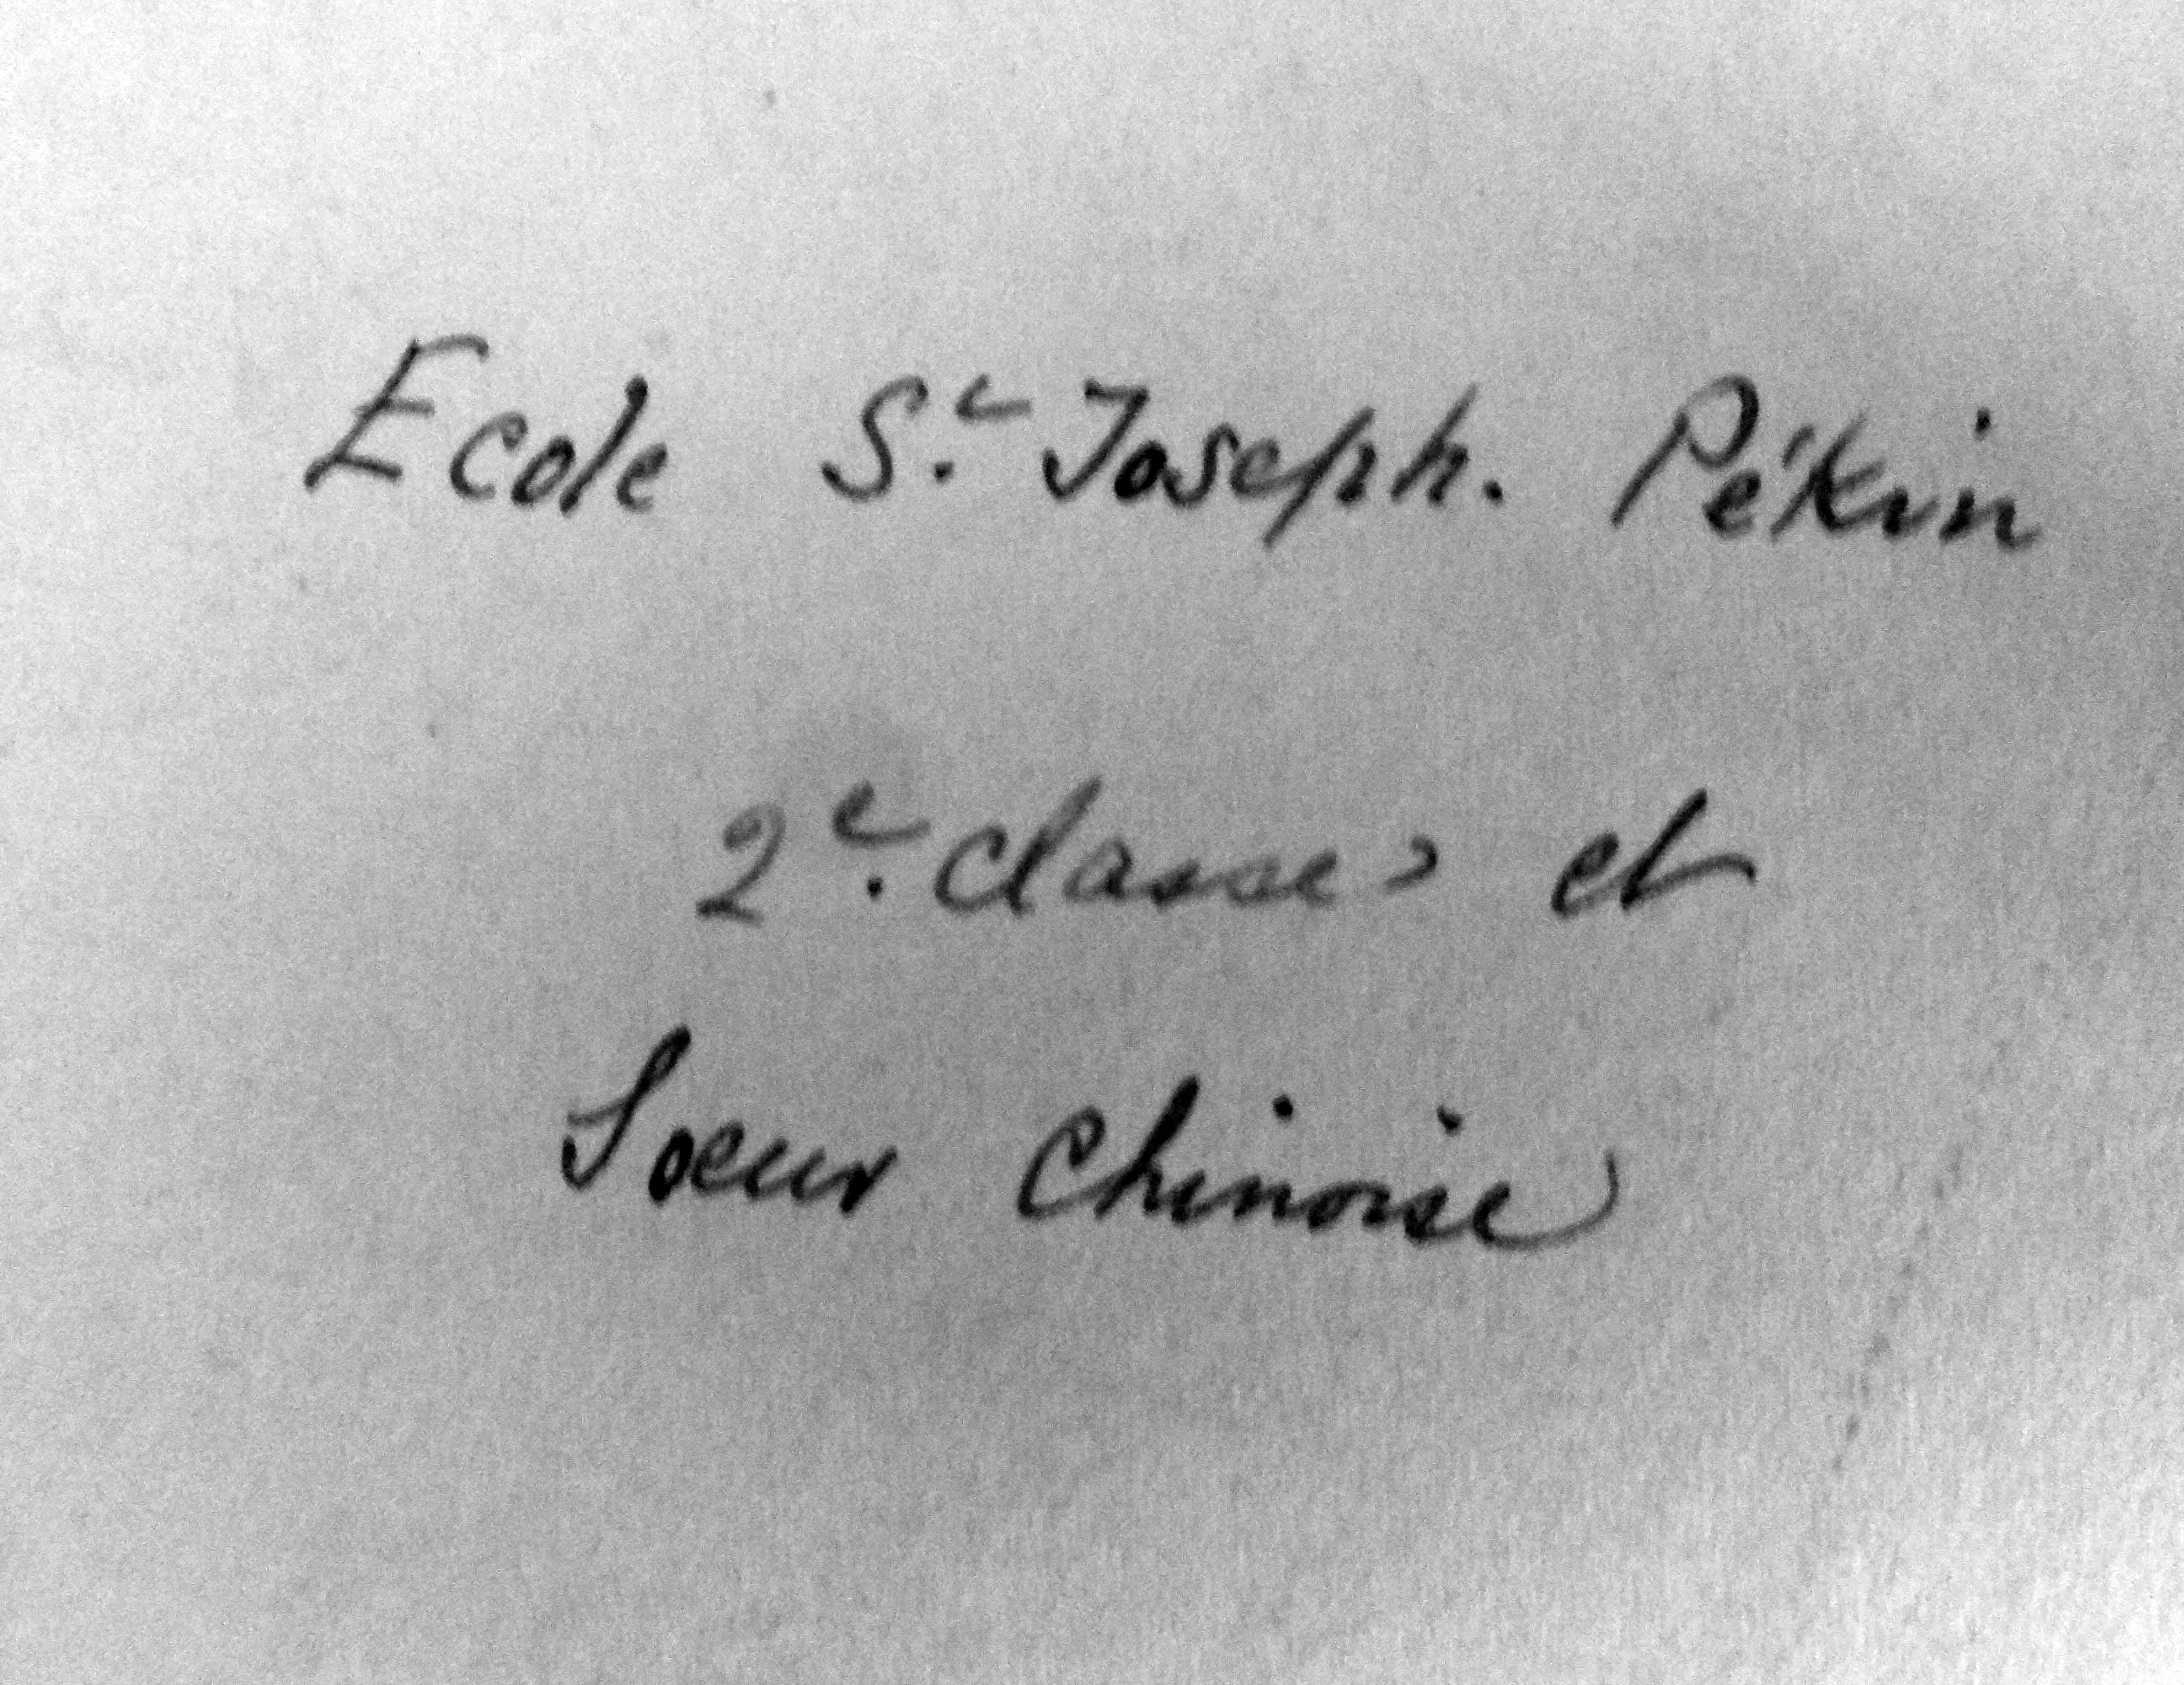 Ecole S.t Joseph. Pékin
2e. classe, et
Soeur Chinoise